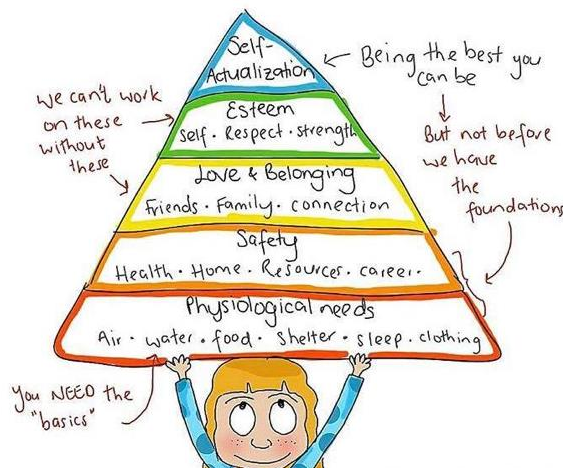 Self-
Actualization
Being the best you
can be
But not before
we have
the
foundations
we can't work
on these
without
these
Esteem
Self · Respect · strength
Love & Belonging
Friends · Family · connection
Safety
Health · Home · Resources · career ·
Physiological needs
Air · water · food · Shelter · sleep · clothing
You NEED the
"basics"